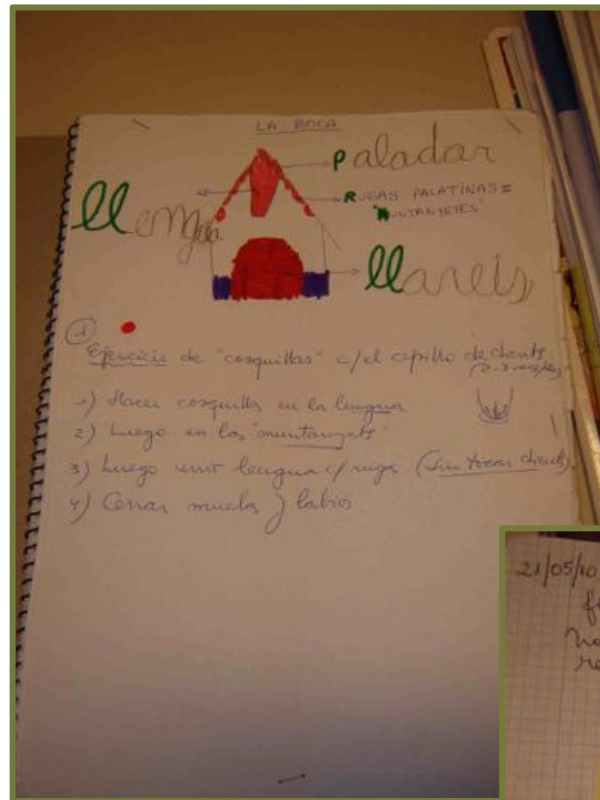 LA BOCA
Paladar
RUGAS PALATINAS =
"MUNTANYETES"
llengua
llavis
1
Ejercicio de "cosquillas" c/el cepillo de dients
1) Hacer cosquillas en la lengua
2) Luego en las "muntanyets"
3) Luego unir lengua c/ruga (sin tocar dients).
4) Cerrar muelas y labios
21/05/10